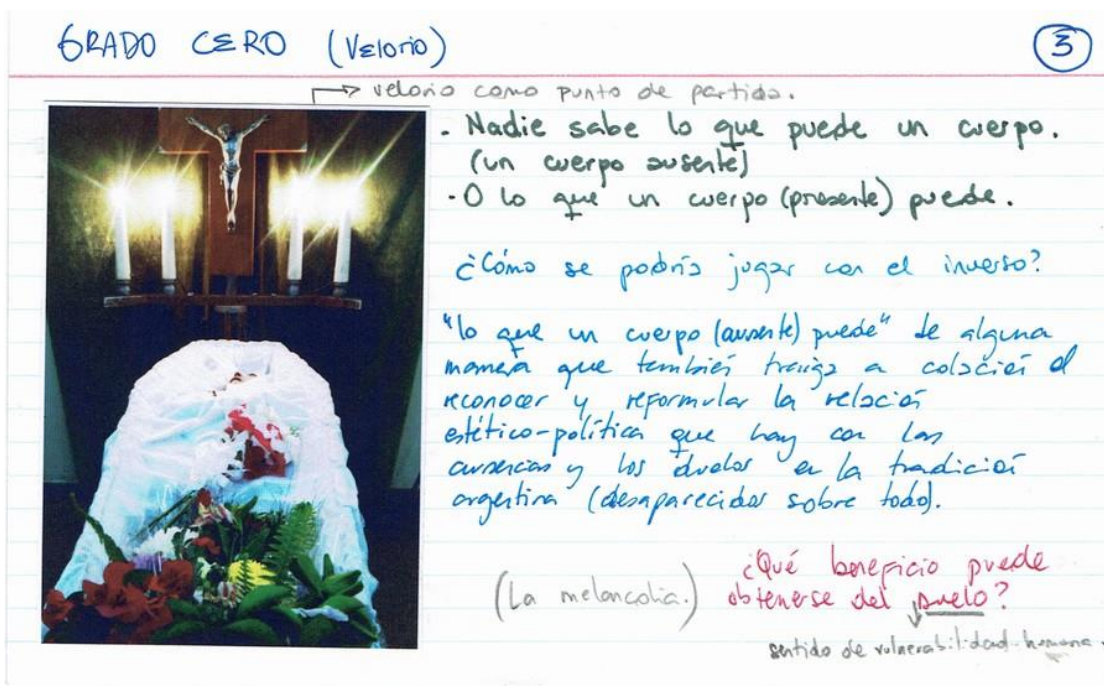 GRADO CERO (Velorio)
3
velorio como punto de partida.
- Nadie sabe lo que puede un cuerpo.
(un cuerpo ausente)
- O lo que un cuerpo (presente) puede.
¿Cómo se podría jugar con el inverso?
"lo que un cuerpo (ausente) puede" de alguna
manera que también traiga a colación el
reconocer y reformular la relación
estético-política que hay con las
ausencias y los duelos en la tradición
argentina (desaparecidos sobre todo).
(La melancolia.)
¿Qué beneficio puede
obtenerse del duelo?
sentido de vulnerabilidad humana.